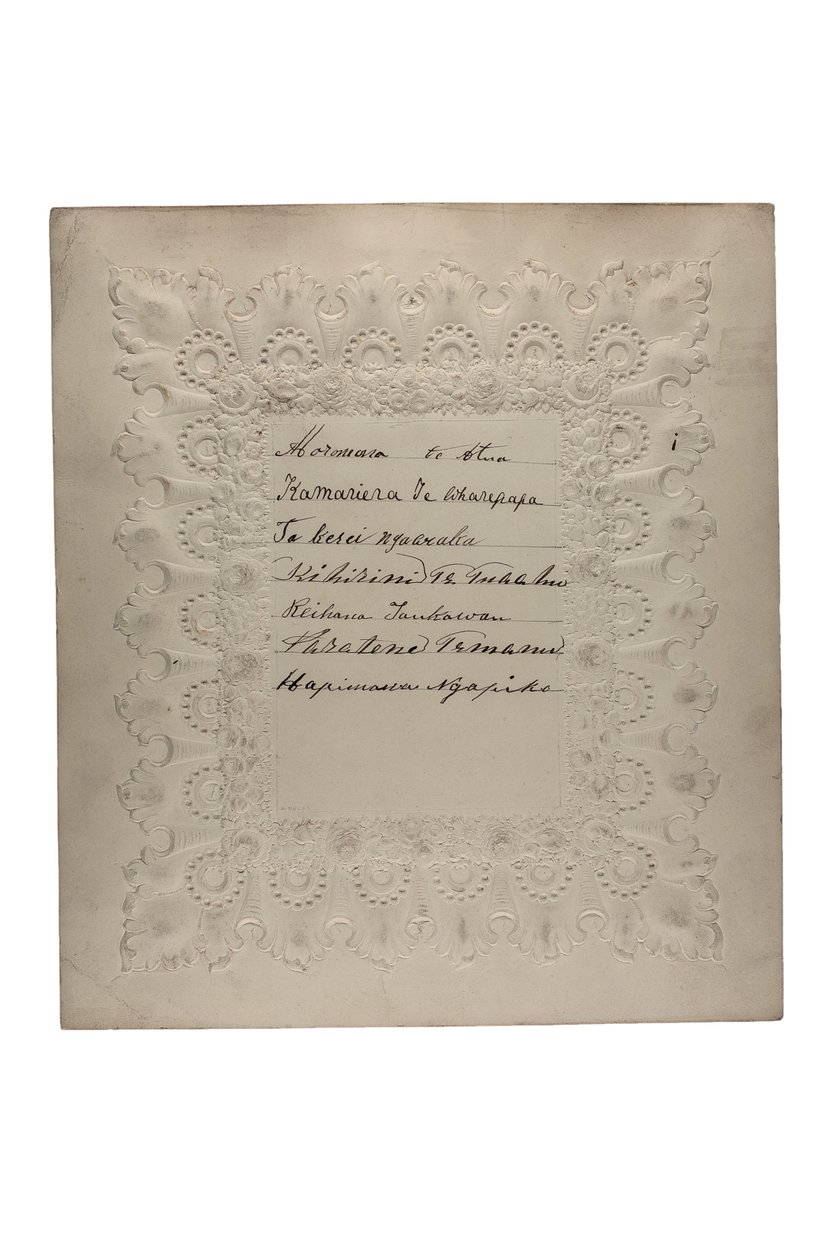 Horomona te Atua
Kamariera Te Wharepapa
Ta kerei ngaaraka
Kihirini Te Tuahu
Reihana Taukawau
Paratene Temanu
Hapimana Ngapiko